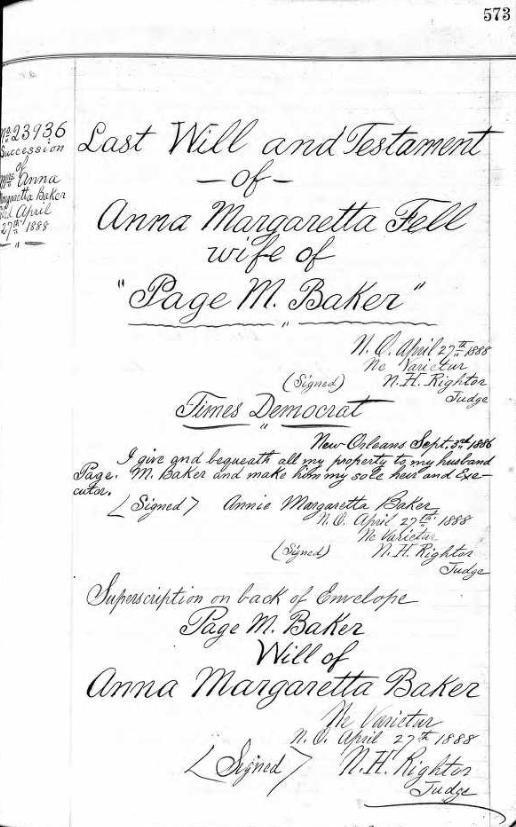 573
No. 23936
Succession
of
Mrs. Anna
Margaretta Baker
filed April
27th 1888
"
Last Will and Testament
- of -
Anna Margaretta Fell
wife of
"Page M. Baker"
"
N. O. April 27th 1888
Ne Varietur
(Signed) N. H. Rightor
Judge
Times Democrat
"
New Orleans Sept. 3rd 1886
I give and bequeath all my property to my husband
Page. M. Baker and make him my sole heir and Exe-
cutor.
(Signed) Annie Margaretta Baker
N. O. April 27th 1888
Ne Varietur
(Signed) N. H. Rightor
Judge
Superscription on back of Envelope
Page M. Baker
Will of
Anna Margaretta Baker
Ne Varietur
N. O. April 27th 1888
(Signed) N. H. Rightor
Judge